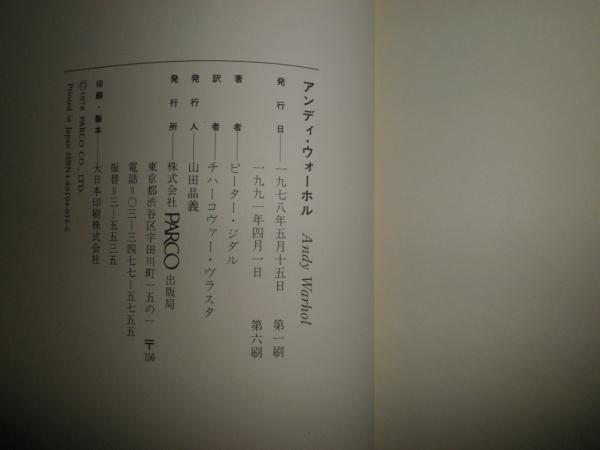 アンディ・ウォーホル Andy Warhol
発行日——一九七八年五月十五日 第一刷
一九九一年四月一日 第六刷
著者——ピーター・ジダル
訳者——チハーコヴァー・ヴラスタ
発行人——山田晶義
発行所——株式会社 PARCO 出版局
東京都渋谷区宇田川町一五の一 〒150
電話=〇三—三四七七—五七五五
振替=三—五五三五
印刷・製本——大日本印刷株式会社
©1978 PARCO CO., LTD.
Printed in Japan ISBN4-89194-016-6